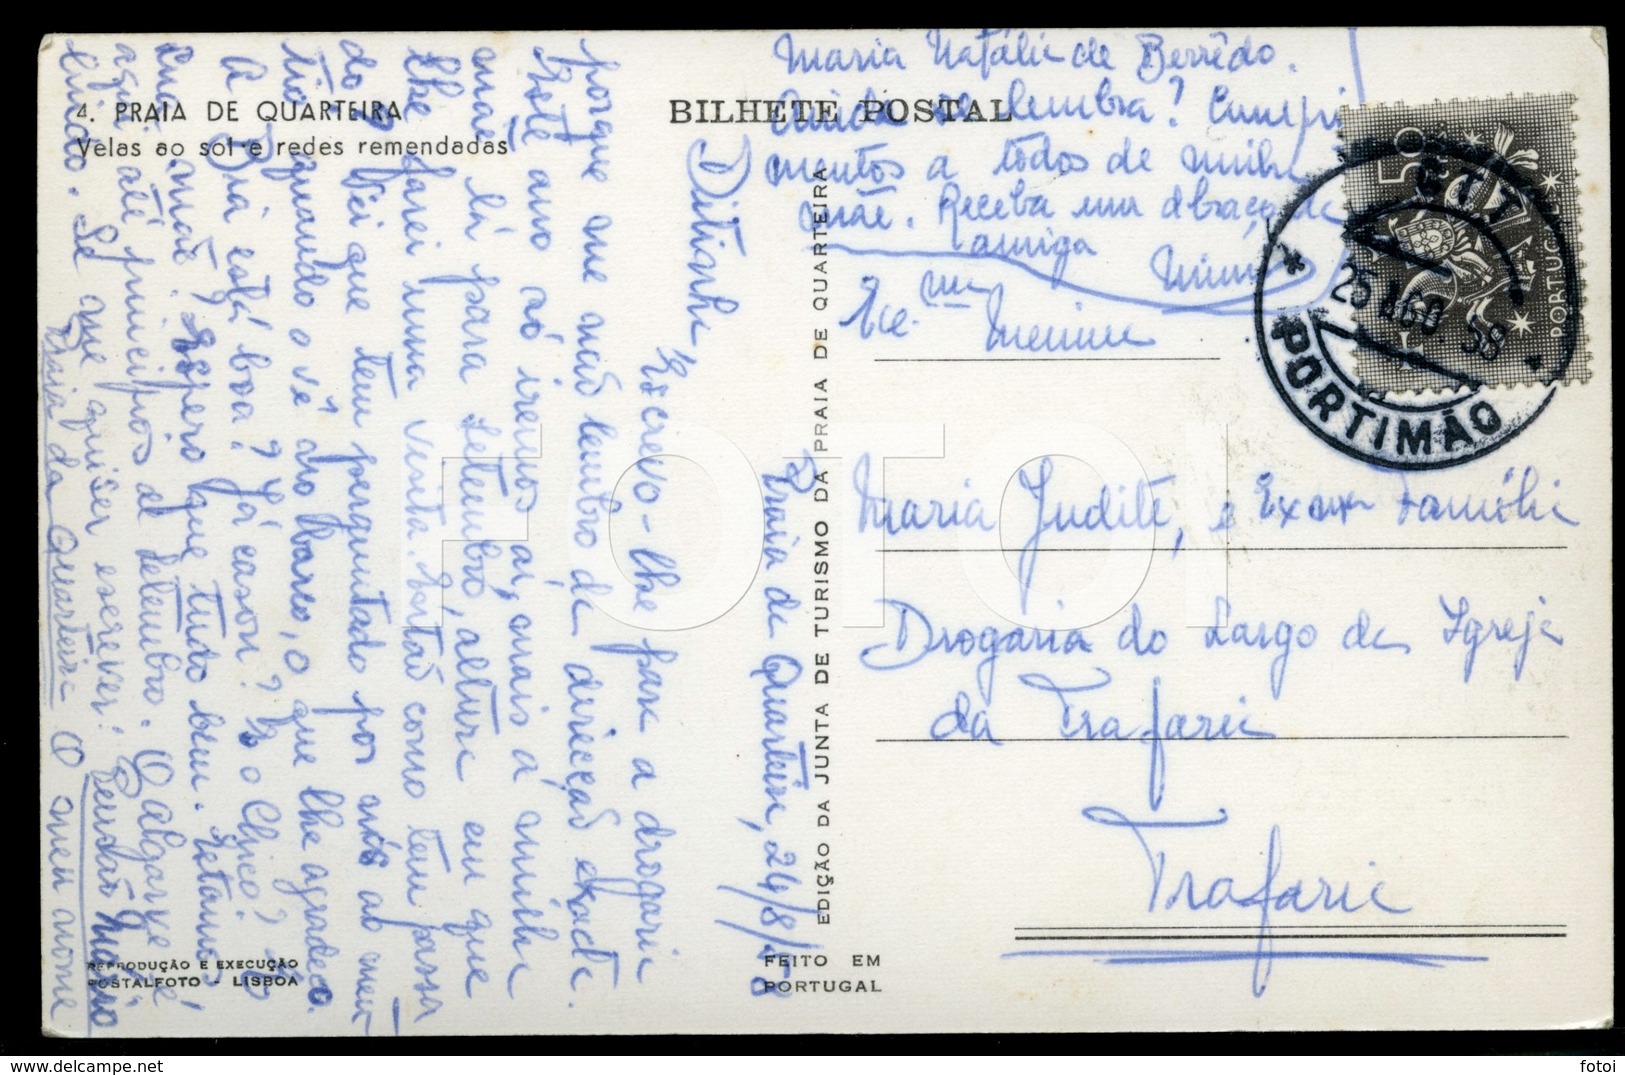 4. PRAIA DE QUARTEIRA
Velas ao sol e redes remendadas
BILHETE POSTAL
Praia de Quarteira, 24/8/58
Ditinha
Escrevo-lhe para a drogaria
porque me não lembro da direcção exacta.
Este ano só iremos aí, mais a minha
mãe lá para Setembro, altura em que
lhe farei uma visita. Então como tem passa
do? Vi que tem perguntado por nós ao meu
tio quando o vê no barco, o que lhe agradeço.
A Bia está boa? Já casou? E o Chico? E
sua mãe? Espero que tudo bem. Estamos
aqui até princípios de Setembro. O Algarve é
lindo. Se me quiser escrever: Pensão Mário
Praia da Quarteira O meu nome
Maria Natália de Berrêdo.
Ainda se lembra? Cumpri
mentos a todos de minha
mãe. Receba um abraço da
amiga
Mimi
EDIÇÃO DA JUNTA DE TURISMO DA PRAIA DE QUARTEIRA
REPRODUÇÃO E EXECUÇÃO
POSTALFOTO - LISBOA
FEITO EM
PORTUGAL
CTT
25 AGO. 58
PORTIMÃO
PORTUGAL
Exc. ma
Menina
Maria Judite, e Exma Família
Drogaria do Largo da Igreja
da Trafaria
Trafaria
FOTOI
fotoi